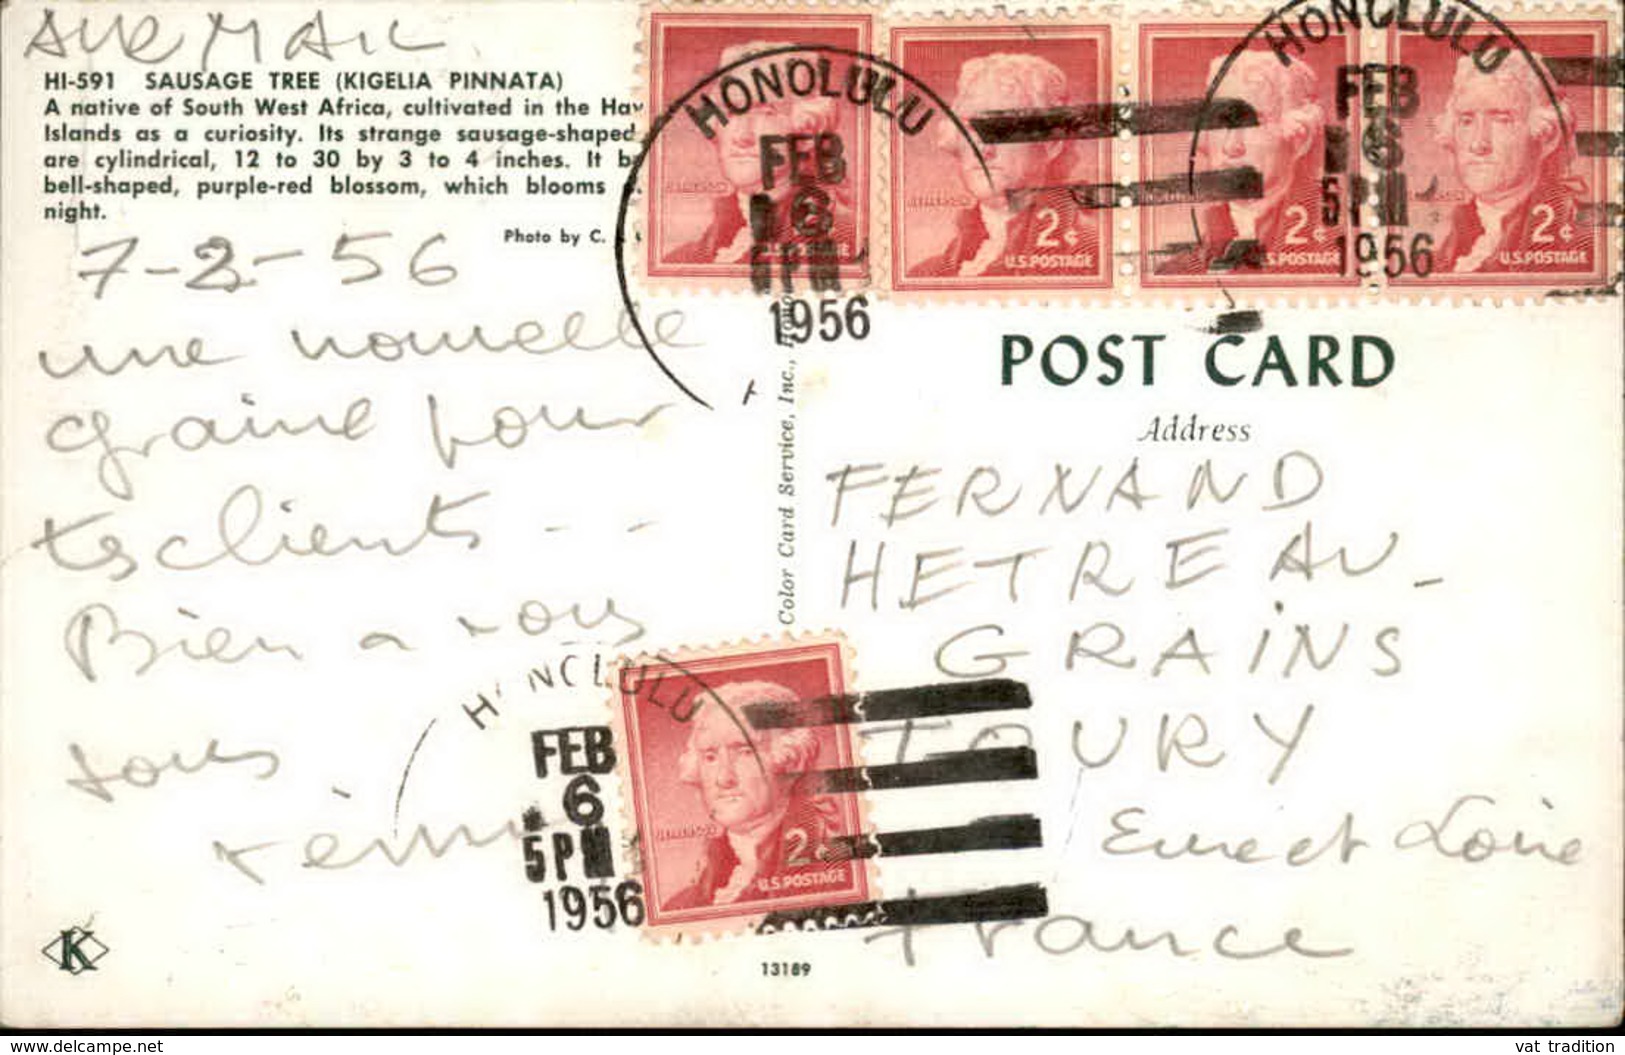 AIR MAIL
HI-591 SAUSAGE TREE (KIGELIA PINNATA)
A native of South West Africa, cultivated in the Haw
Islands as a curiosity. Its strange sausage-shaped
are cylindrical, 12 to 30 by 3 to 4 inches. It b
bell-shaped, purple-red blossom, which blooms
night.
Photo by C.
7-2-56
une nouvelle
graine pour
tes clients - -
Bien a vous
tous
HONOLULU
FEB
6
5 PM
1956
2¢
U.S. POSTAGE
2¢
U.S. POSTAGE
2¢
U.S. POSTAGE
HONOLULU
FEB
6
5 PM
1956
2¢
U.S. POSTAGE
Color Card Service, Inc.,
POST CARD
Address
FERNAND
HETREAU -
GRAINS
TOURY
Eure et Loire
France
HONOLULU
FEB
6
5 PM
1956
JEFFERSON
2
U.S. POSTAGE
K
13189
www.delcampe.net
vat_tradition